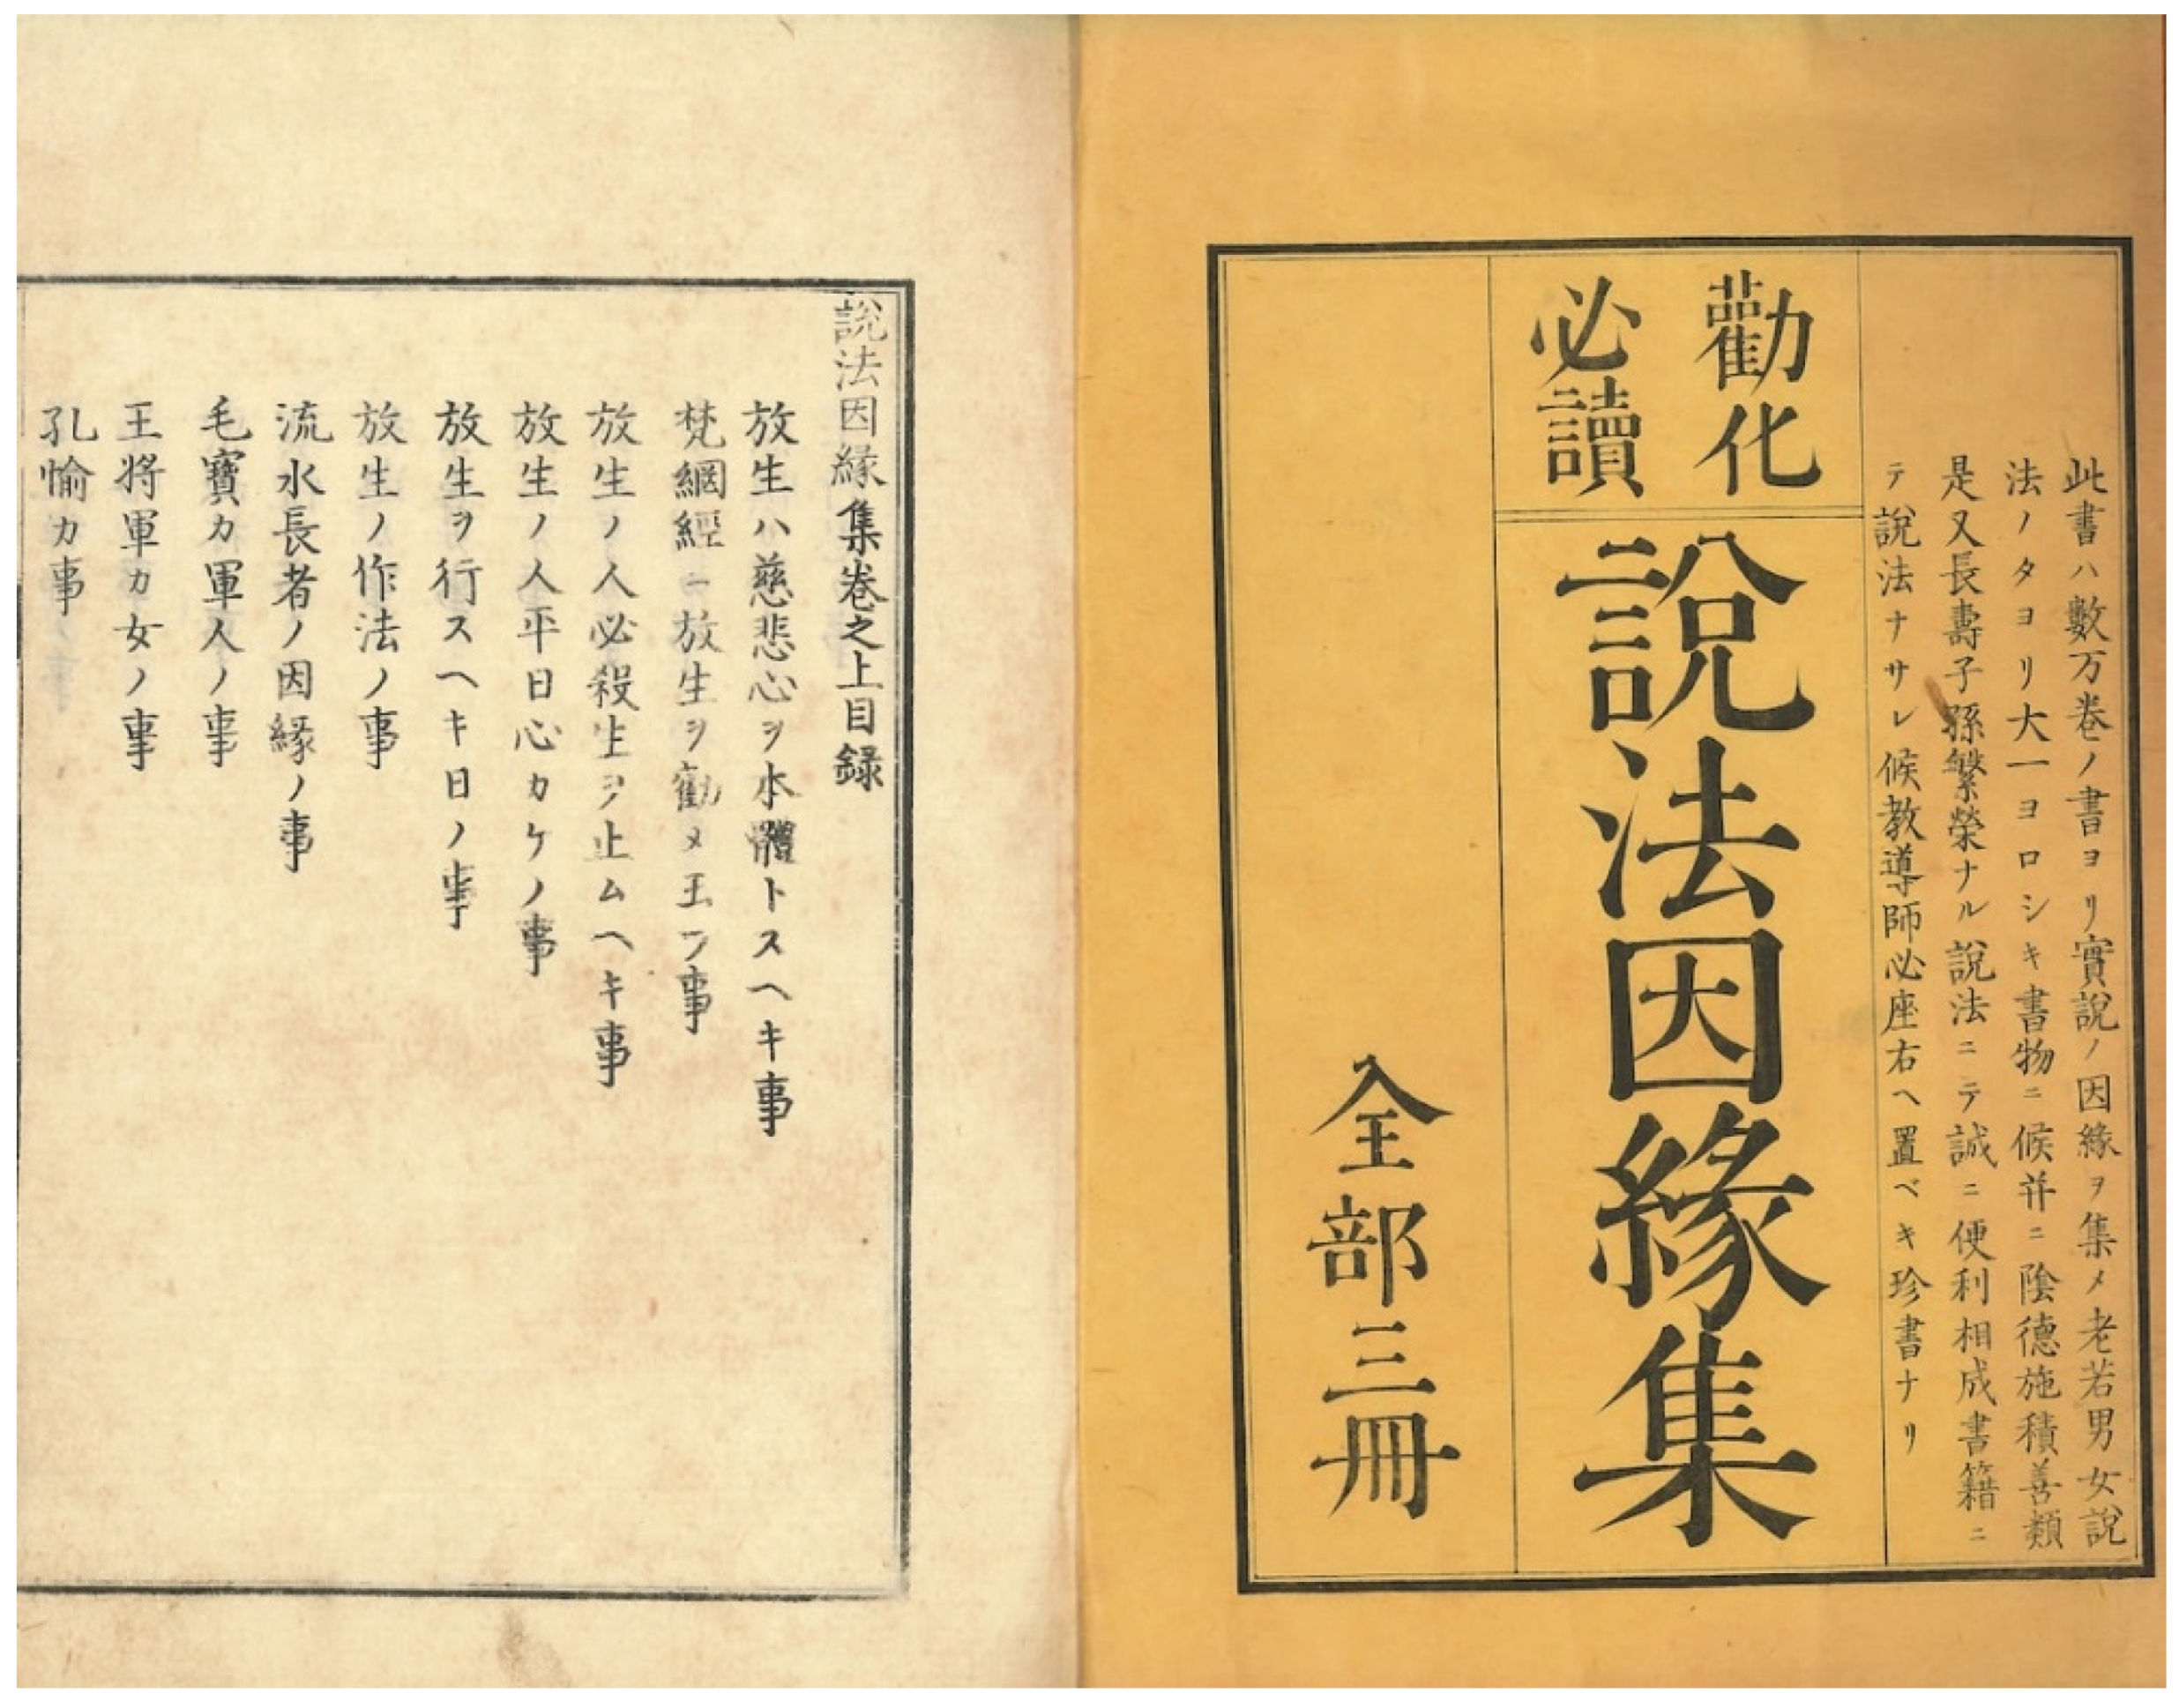 此書ハ數万巻ノ書ヨリ實說ノ因緣ヲ集メ老若男女說
法ノタヨリ大一ヨロシキ書物ニ候并ニ陰德施積善類
是又長壽子孫繁榮ナル說法ニテ誠ニ便利相成書籍ニ
テ說法ナサレ候教導師必座右ヘ置ベキ珍書ナリ
勸化
必讀
說法因緣集
全部三冊
說法因緣集卷之上目録
放生ハ慈悲心ヲ本體トスヘキ事
梵網經ニ放生ヲ勸メ玉フ事
放生ノ人必殺生ヲ止ムヘキ事
放生ノ人平日心カケノ事
放生ヲ行スヘキ日ノ事
放生ノ作法ノ事
流水長者ノ因緣ノ事
毛寶カ軍人ノ事
王将軍カ女ノ事
孔愉カ事